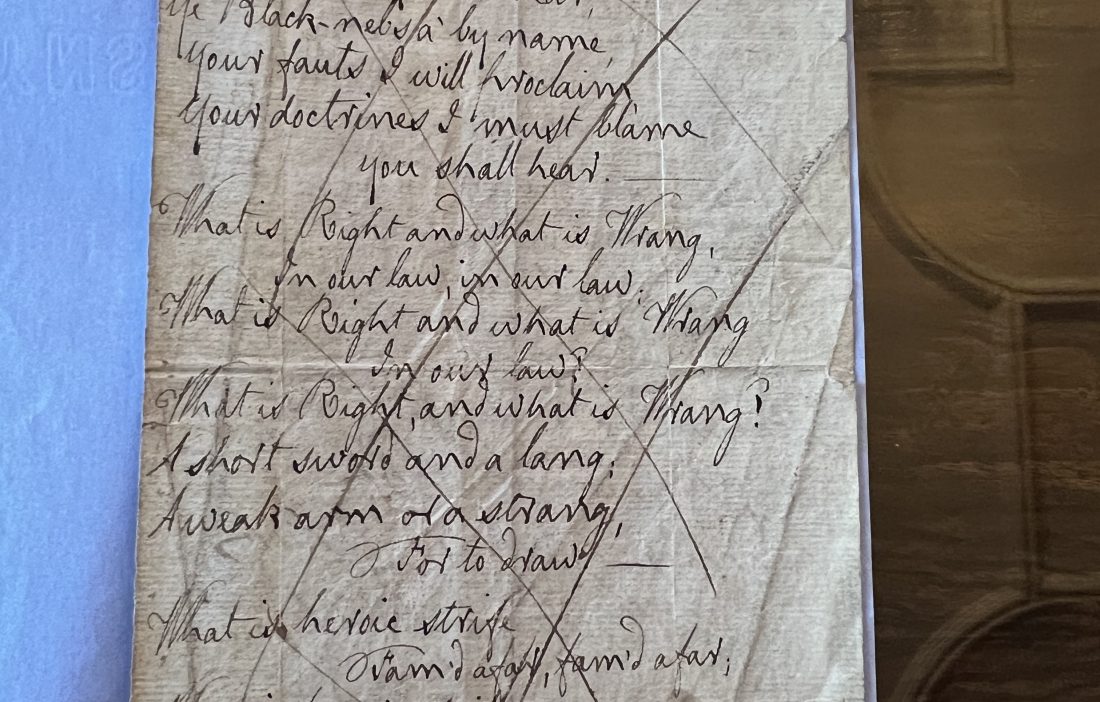 ye Black-nebs a' by name,
Your fauts I will proclaim,
Your doctrines I must blame
you shall hear. —
What is Right and what is Wrang,
In our law, in our law;
What is Right and what is Wrang
In our law?
What is Right, and what is Wrang?
A short sword and a lang;
A weak arm or a strang,
For to draw —
What is heroic strife
Fam'd afar, fam'd afar;